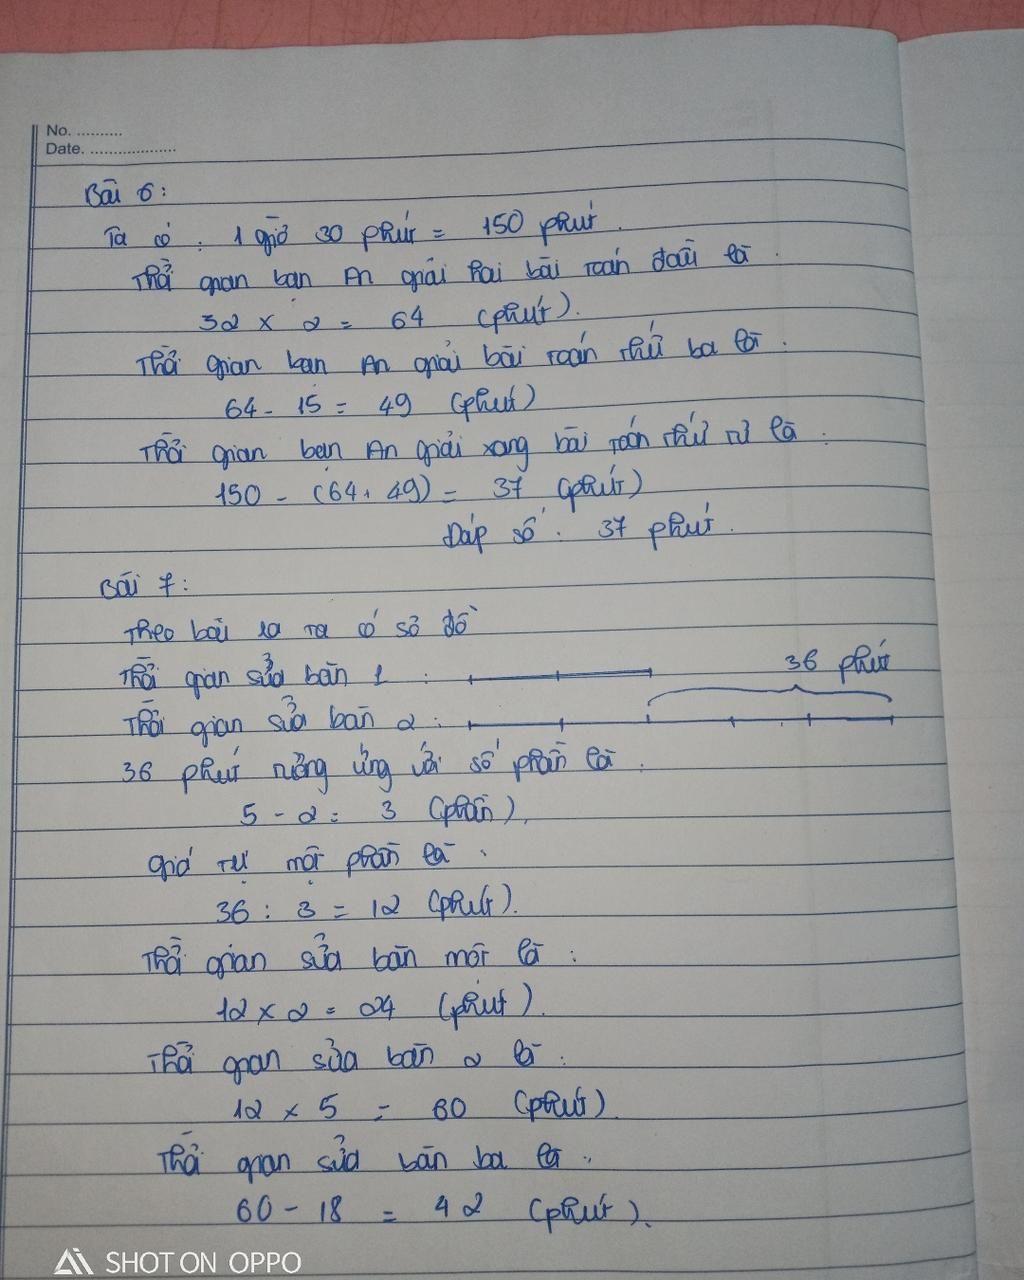 No. ..........
Date. ...................
Bài 6:
Ta có : 1 giờ 30 phút = 150 phút.
Thời gian bạn An giải hai bài toán đầu là :
32 x 2 = 64 (phút).
Thời gian bạn An giải bài toán thứ ba là :
64 - 15 = 49 (phút)
Thời gian bạn An giải xong bài toán thứ tư là :
150 - (64 + 49) = 37 (phút)
Đáp số : 37 phút.
Bài 7:
Theo bài ra ta có sơ đồ
36 phút
Thời gian sửa bàn 1 :
Thời gian sửa bàn 2 :
36 phút tương ứng với số phần là :
5 - 2 = 3 (phần),
Giá trị một phần là :
36 : 3 = 12 (phút).
Thời gian sửa bàn một là :
12 x 2 = 24 (phút).
Thời gian sửa bàn 2 là :
12 x 5 = 60 (phút).
Thời gian sửa bàn ba là :
60 - 18 = 42 (phút).
SHOT ON OPPO